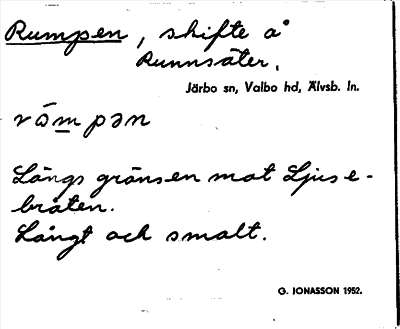 Rumpen, skifte å
Runnsäter.
Järbo sn, Valbo hd, Älvsb. ln.
römpən
Längs gränsen mot Ljuse-
bråten.
Långt och smalt.
G. JONASSON 1952.